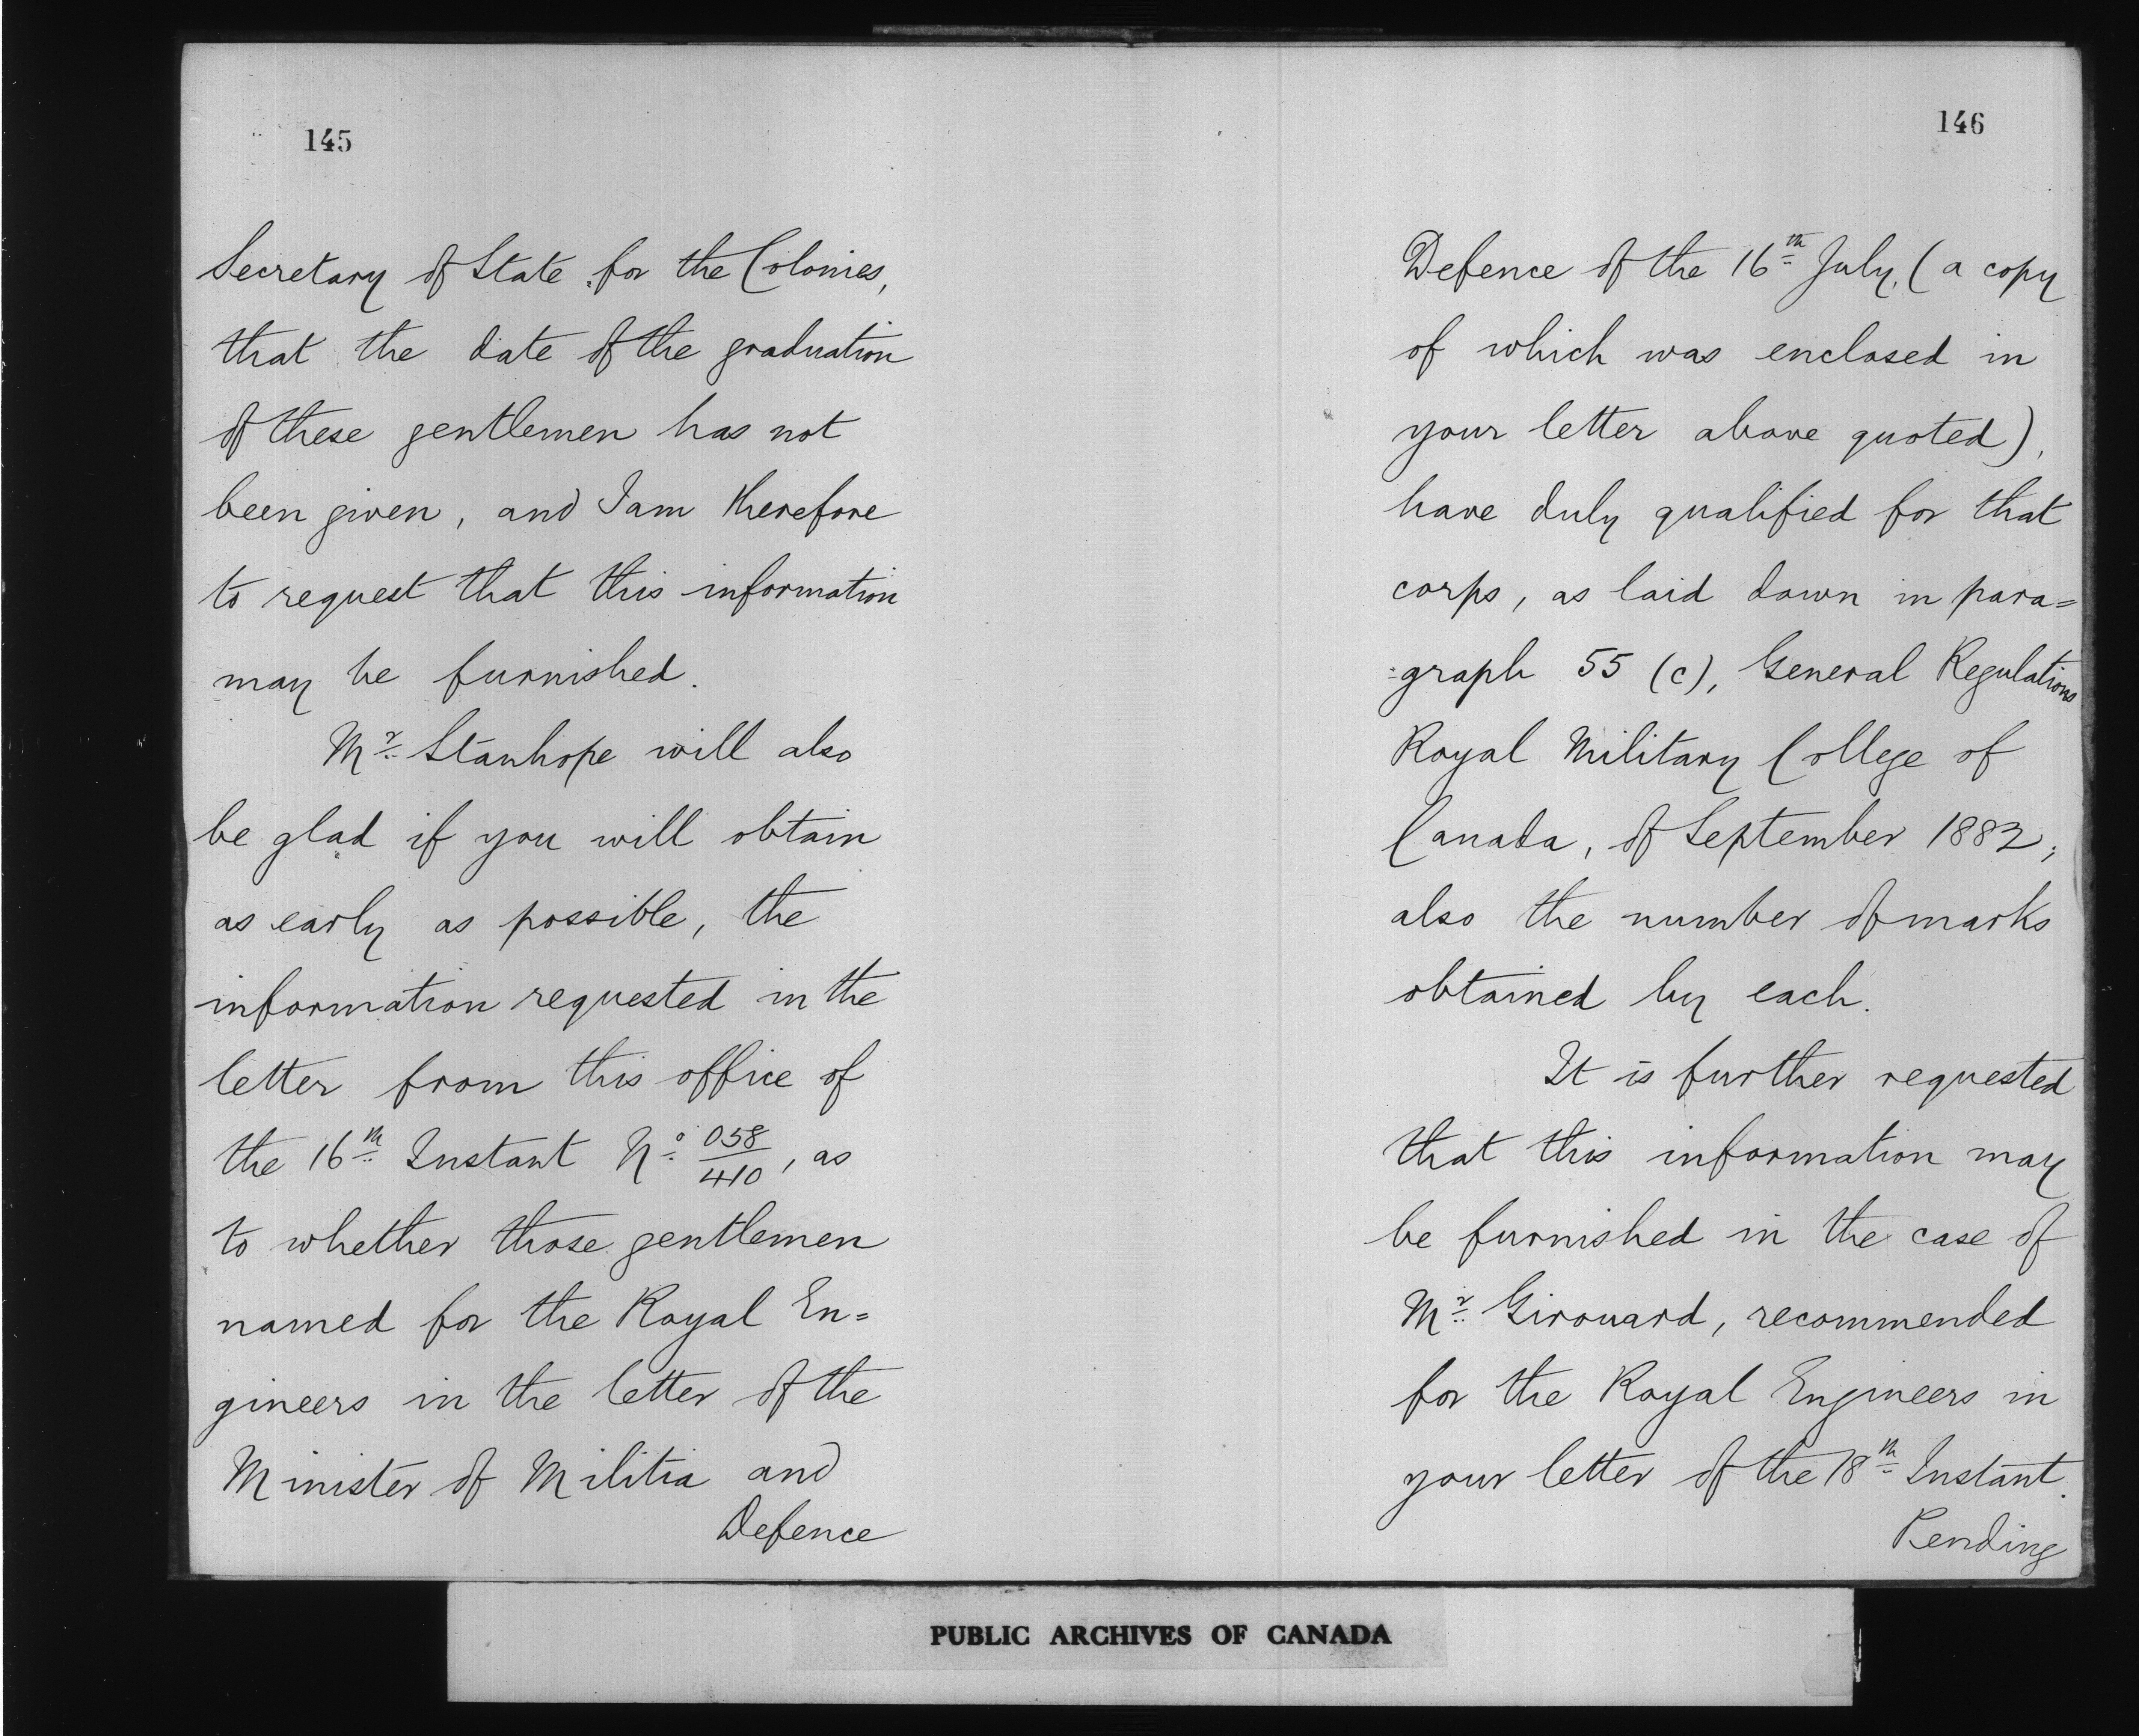 145
Secretary of State for the Colonies,
that the date of the graduation
of these gentlemen has not
been given, and I am therefore
to request that this information
may be furnished.
Mr. Stanhope will also
be glad if you will obtain
as early as possible, the
information requested in the
letter from this office of
the 16th Instant No. 058/410, as
to whether those gentlemen
named for the Royal En=
gineers in the letter of the
Minister of Militia and
Defence
146
Defence of the 16th July, (a copy
of which was enclosed in
your letter above quoted),
have duly qualified for that
corps, as laid down in para=
=graph 55 (c), General Regulations
Royal Military College of
Canada, of September 1882;
also the number of marks
obtained by each.
It is further requested
that this information may
be furnished in the case of
Mr. Girouard, recommended
for the Royal Engineers in
your letter of the 18th Instant.
Pending
PUBLIC ARCHIVES OF CANADA